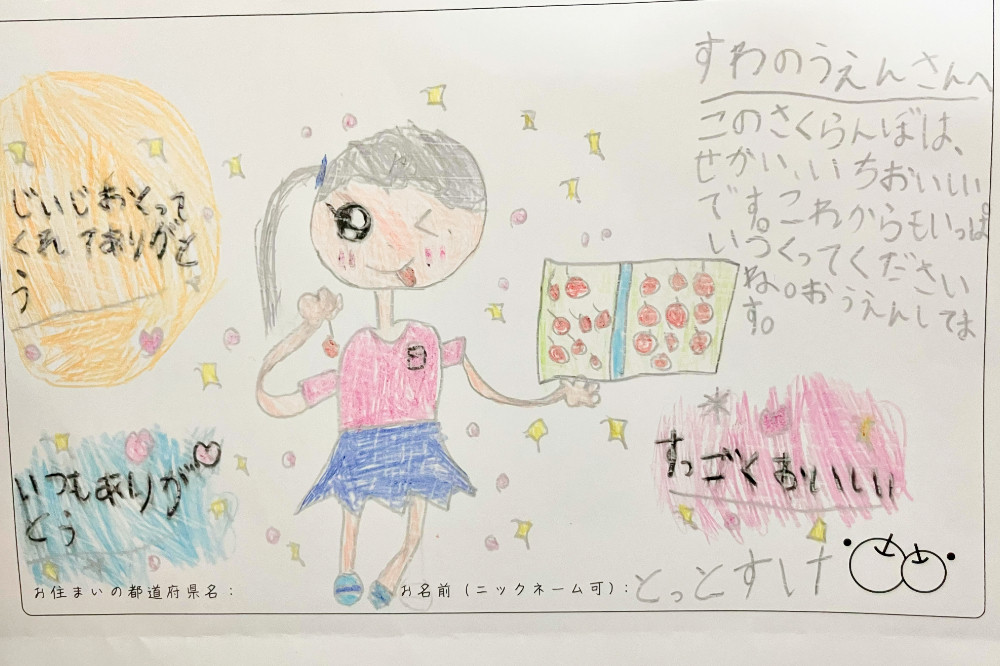 すわのうえんさんへ
このさくらんぼは、
せかい、いちおいしい
です。これからもいっぱ
いつくってください
ね。おうえんしてま
す。
じいじおとって
くれてありがと
う
いつもありが
とう
すっごくおいしい
お住まいの都道府県名：
お名前（ニックネーム可）：とっとすけ